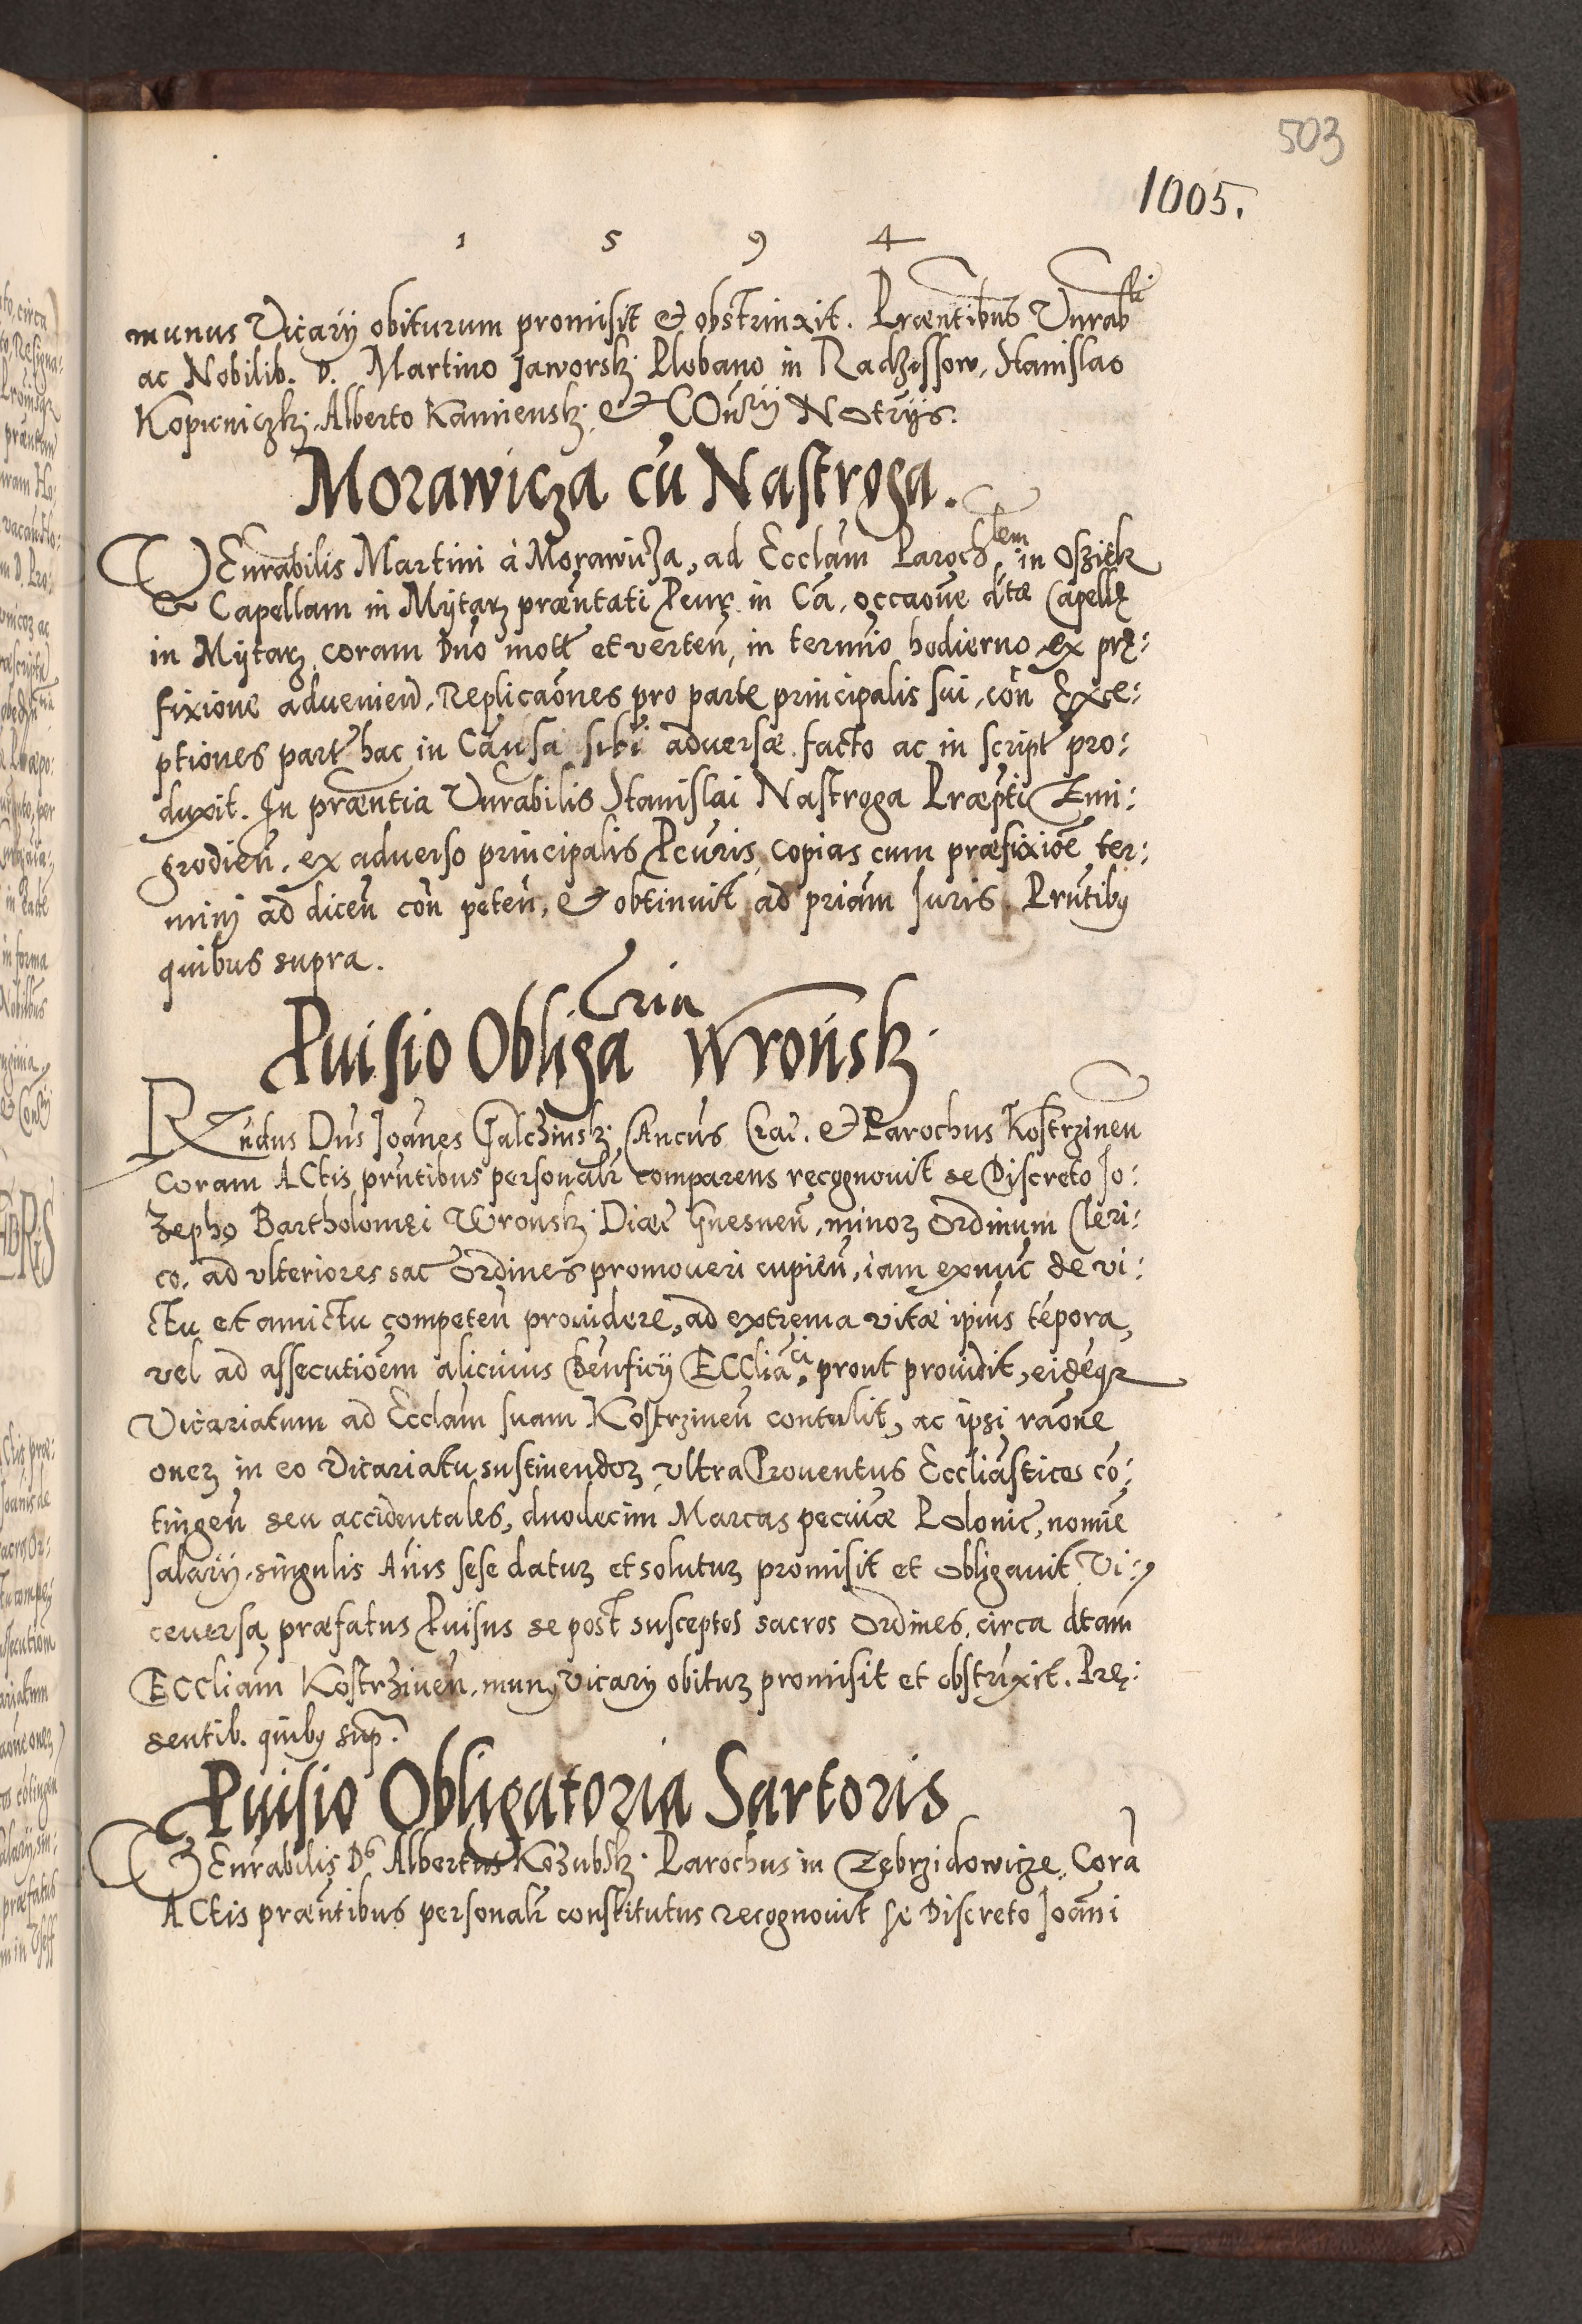 503
1005.
1 5 9 4
munus Vicarÿ obiturum promisit & obstrinxit. Præntibus Vnrab^li
ac Nobilib. D. Martino Jaworsk: Plobano in Radzissow, Stanislao
Kopicniczkj, Alberto Kamiensk: & COnrÿ NOtrÿs.
Morawicza cū Nastroga.
VEnrabilis Martini à Morawicza, ad Ecclam Paroch^lem in Osziek
& Capellam in Mÿtarz præntati Pcur. in Cā, occaone dtæ Capellę
in Mÿtarz coram Dno mott et verten, in termio hodierno, ex pręː
fixione aduenien, Replicaones pro parte principalis sui, con Exceː
ptiones part hac in Causa sibi aduersæ facto ac in script proː
duxit. In præntia Vnrabilis Stanislai Nastroga Præpti Zmiː
grodien. ex aduerso principalis Pcuris, copias cum præfixioe terː
minj ad dicen con peten, & obtinuit ad priam Juris. Prntibꝰ
quibus supra.
Puisio Obliga^tria Wronsk:
REndus Dns Joanes Galczinsk: CAncus Crac. & Parochus Kostrzinen
Coram ACtis prntibus personalr comparens recognouit se Discreto Joː
zepho Bartholomęi Wronsk: Diæc Gnesnen, minoꝝ Ordinum Cleriː
co. ad vlteriores sac Ordines promoueri cupien, iam exnuc de viː
ctu et amictu competen prouidere, ad extrema vitæ ipius tepora,
vel ad assecutioem alicuius Benficÿ ECClia^ci, prout prouidit, eideqꝫ
Vicariatum ad Ecclam suam Kostrzinen contulit, ac ipsi raone
oneꝝ in eo Vicariatu sustinendoꝝ vltra Prouentus Eccliasticos coː
tingen seu accidentales, duodecim Marcas pecuiæ Polonic, nomie
salarÿ, singulis Anis sese datuꝝ et solutuꝝ promisit et obligauit. Viː
ceuersa præfatus Puisus se post susceptos sacros Ordines, circa dtam
ECCliam Kostrzinen, munꝰ vicarÿ obituꝝ promisit et obstrixit. Pręː
sentib. quibꝰ sup.
Puisio Obligatoria Sartoris
VEnrabilis Ds Albertus Kozubsk: Parochus in Zebrzidowicze, Cora
ACtis præntibus personalr constitutus recognouit se Discreto Joani